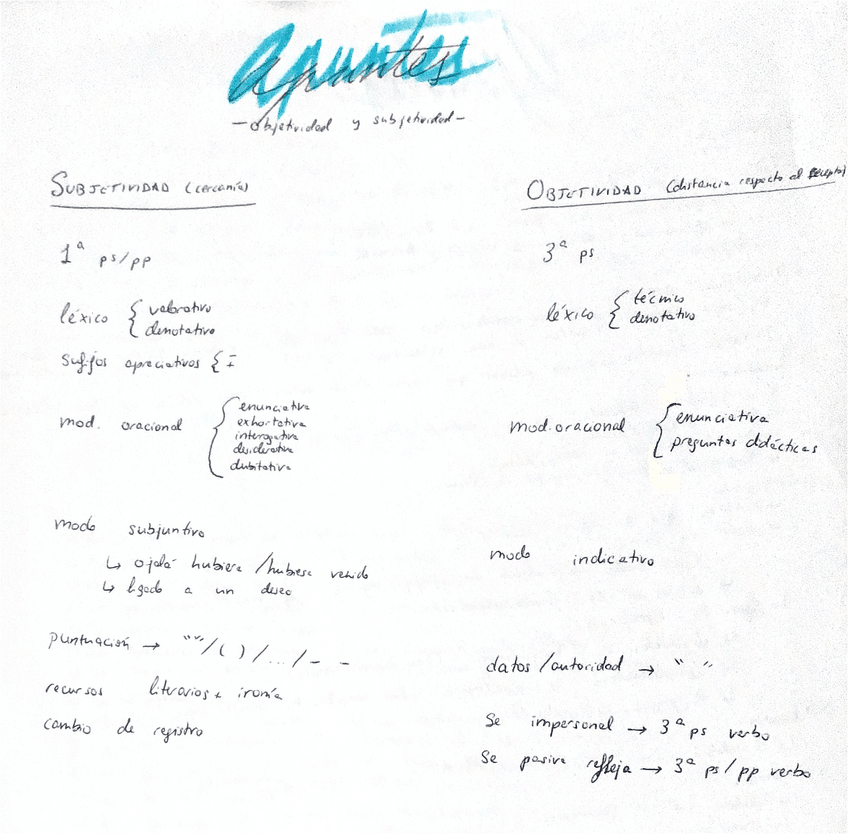 apuntes
-objetividad y subjetividad-
SUBJETIVIDAD (cercanía)
1ª ps/pp
léxico { valorativo
denotativo
Sufijos apreciativos { ±
mod. oracional { enunciativa
exhortativa
interogativa
desiderativa
dubitativa
modo subjuntivo
↳ ojalá hubiera/hubiese venido
↳ ligado a un deseo
puntuación → “”/( )/.../- -
recursos literarios + ironía
cambio de registro
OBJETIVIDAD (distancia respecto al receptor)
3ª ps
léxico { técnico
denotativo
mod. oracional { enunciativa
preguntas didácticas
modo indicativo
datos/autoridad → “ ”
Se impersonal → 3ª ps verbo
Se pasiva refleja → 3ª ps/pp verbo